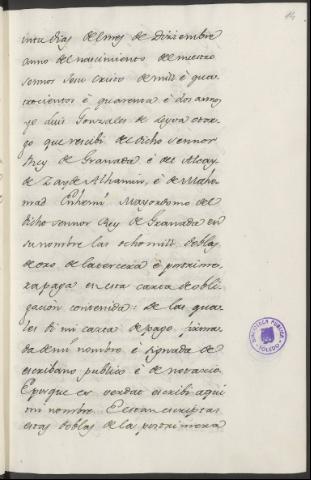 14
inta dias del mes de Diziembre
anno del nascimiento de nuestro
sennor Jesu Cristo de mill è qua-
trocientos è quarenta è dos annos,
yo Luis Gonzales de Leyva otor-
go que rescibi del dicho sennor
Rey de Granada è del Alcay-
de Zayde Alhamin, è de Maho-
mad Mayordomo del
dicho sennor Rey de Granada en
su nombre las ocho mill doblas
de oro de la tercera è postrime-
ra paga en esta carta de obli-
gación contenida: de las qua-
les di mi carta de pago firma-
da de mi nombre è signada de
escribano publico è de notario.
E porque es verdat escribi aqui
mi nombre. E estan escriptas
estas doblas de la postrimera
BIBLIOTECA PUBLICA
TOLEDO